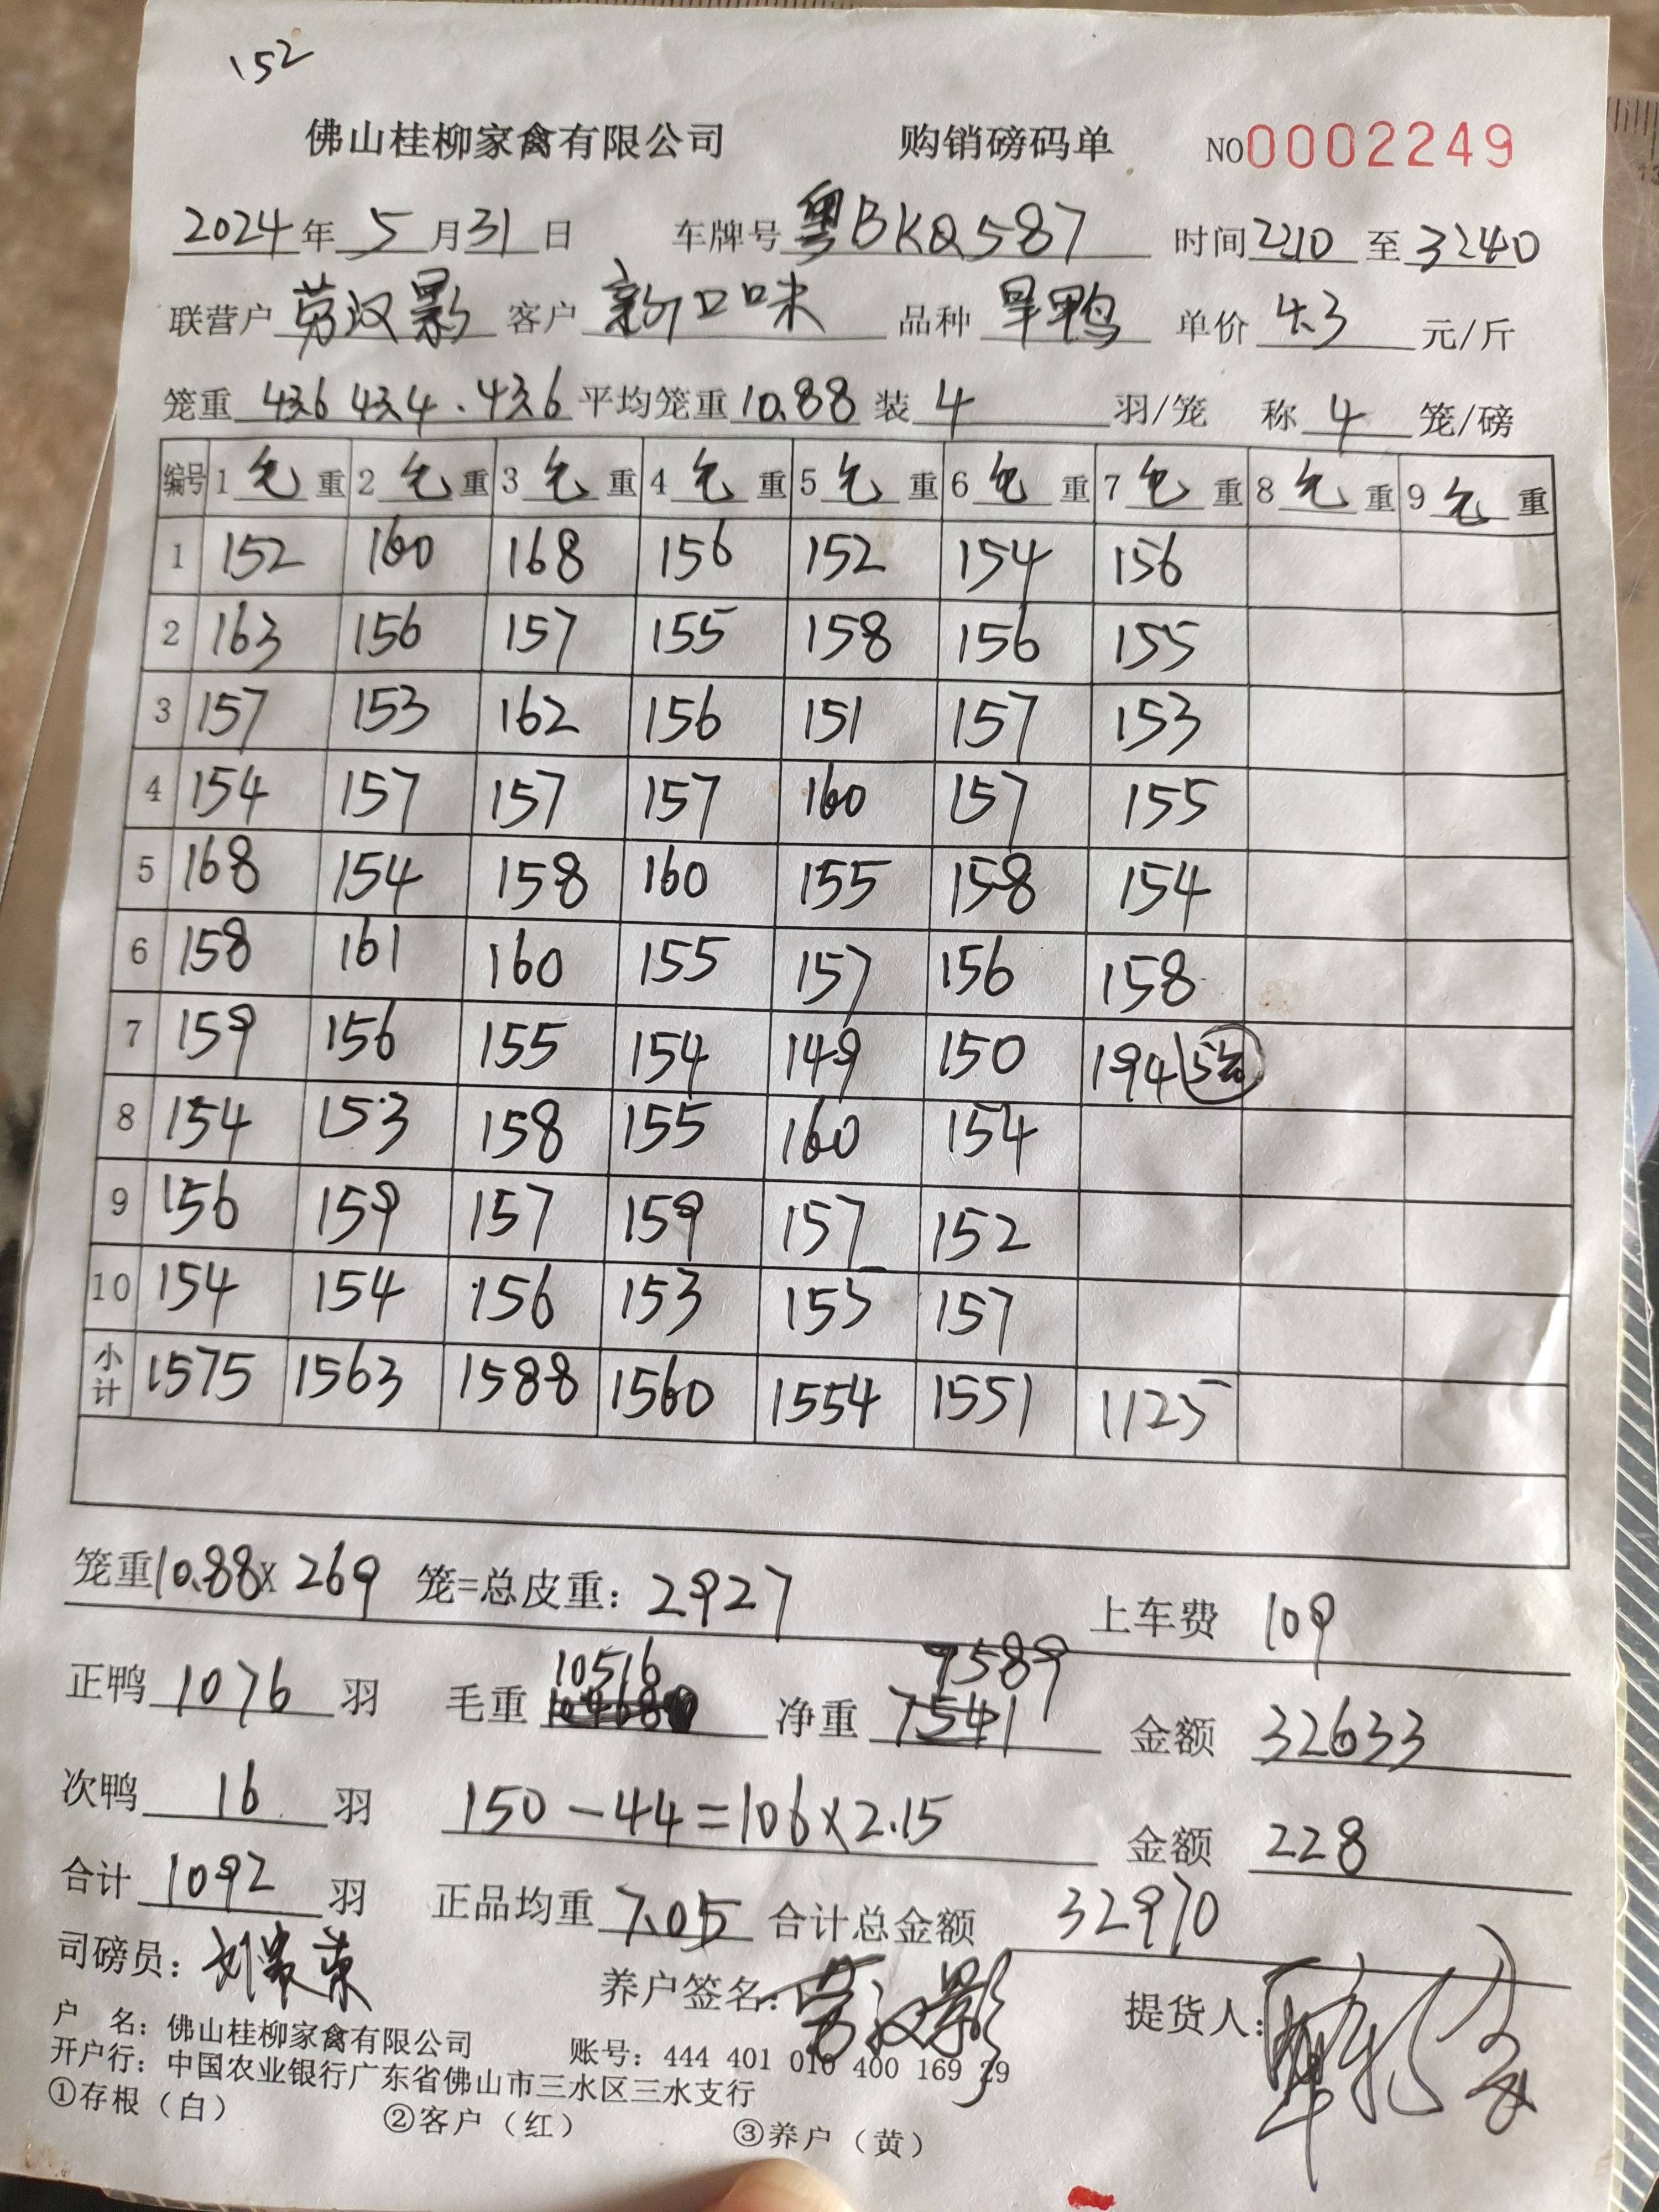 152
佛山桂柳家禽有限公司 购销磅码单 NO0002249
2024年5月31日 车牌号粤BKQ587 时间2210至3240
联营户劳汉影 客户新口味 品种旱鸭 单价4.3元/斤
笼重436 434.436平均笼重10.88装4羽/笼 称4笼/磅
编号 1毛重 2毛重 3毛重 4毛重 5毛重 6毛重 7毛重 8毛重 9毛重
1 152 160 168 156 152 154 156
2 163 156 157 155 158 156 155
3 157 153 162 156 151 157 153
4 154 157 157 157 160 157 155
5 168 154 158 160 155 158 154
6 158 161 160 155 157 156 158
7 159 156 155 154 149 150 194
8 154 153 158 155 160 154
9 156 159 157 159 157 152
10 154 154 156 153 155 157
小计 1575 1563 1588 1560 1554 1551 1125
笼重10.88x269笼=总皮重：2927 上车费 109
10516 7589
正鸭1076羽 毛重 净重7541 金额32633
次鸭16羽 150-44=106x2.15 金额228
合计1092羽 正品均重7.05 合计总金额32970
司磅员： 养户签名：劳汉影 提货人：
户 名：佛山桂柳家禽有限公司 账号：444 401 010 400 169 29
开户行：中国农业银行广东省佛山市三水区三水支行
①存根（白） ②客户（红） ③养户（黄）